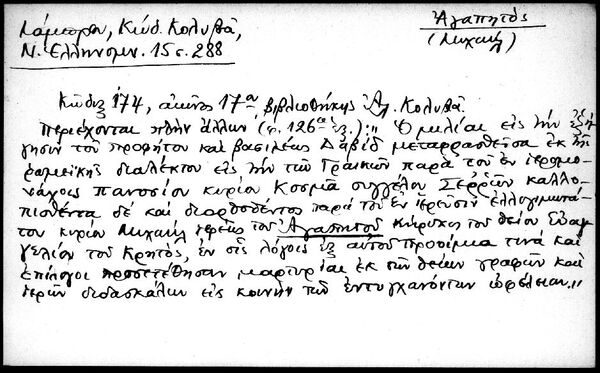 Λάμπρου, Κώδ. Κολυβᾶ,
Ν. Ἑλληνομν. 15 σ. 288
Ἀγαπητὸς
(Μιχαὴλ)
Κῶδιξ 174, αἰῶνος 17ου βιβλιοθήκης Ἀλ. Κολυβᾶ.
Περιέχονται πλὴν ἄλλων (φ. 126α ἑξ.): " Ὁμιλίαι εἰς τὴν ἐξή
γησιν τοῦ προφήτου καὶ βασιλέως Δαβὶδ μεταφρασθεῖσαι ἐκ τῆς
ῥωμαϊκῆς διαλέκτου εἰς τὴν τῶν Γραικῶν παρὰ τοῦ ἐν ἱερομο-
νάχοις πανοσίου κυρίου Κοσμᾶ συγγέλου Σερρῶν καλλο-
πισθέντα δὲ καὶ διορθωθέντος παρὰ τοῦ ἐν ἱερεῦσιν ἐλλογιμωτά-
του κυρίου Μιχαὴλ ἱερέως τοῦ Ἀγαπητοῦ κήρυκος τοῦ θείου Εὐαγ
γελίου τοῦ Κρητός, ἐν οἷς λόγοις ἐξ αὐτοῦ προοίμια τινὰ καὶ
ἐπίλογοι προσετέθησαν μαρτυρίαι ἐκ τῶν θείων γραφῶν καὶ
ἱερῶν διδασκάλων εἰς κοινὴν τῶν ἐντυγχανόντων ὠφέλειαν."